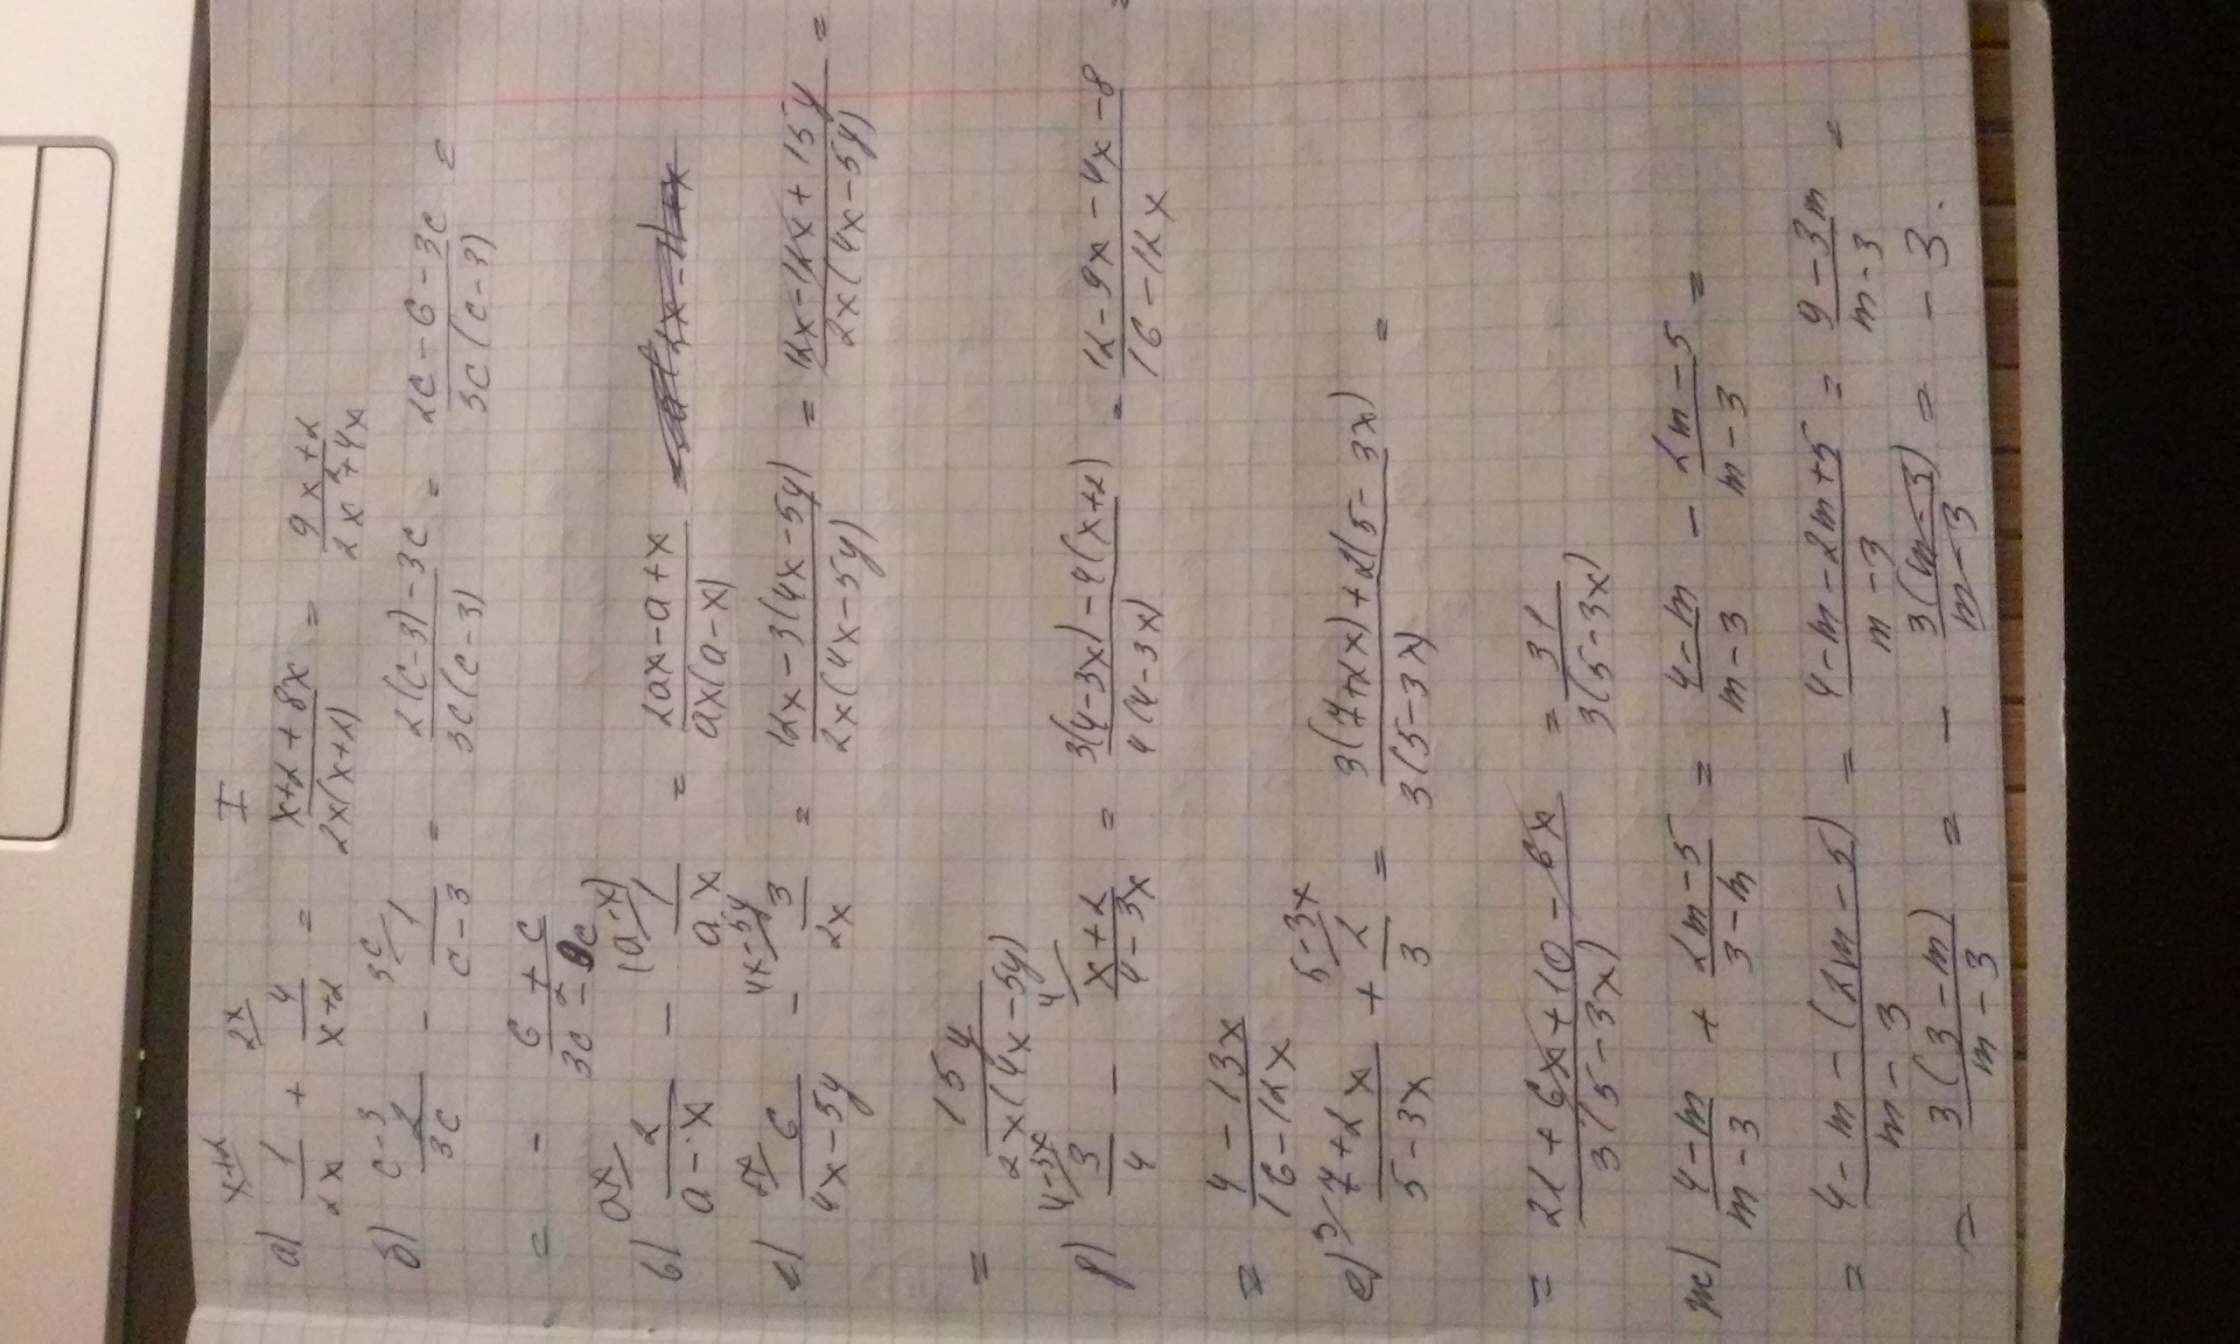 I
а) x+2/ 1/2x + 2x/ 4/x+2 = x+2+8x/2x(x+2) = 9x+2/2x²+4x
б) c-3/ 2/3c - 3c/ 1/c-3 = 2(c-3)-3c/3c(c-3) = 2c-6-3c/3c(c-3) =
= - 6+c/3c²-9c
в) ax/ 2/a-x - (a-x)/ 1/ax = 2ax-a+x/ax(a-x)
г) 2x/ 6/4x-5y - 4x-5y/ 3/2x = 12x-3(4x-5y)/2x(4x-5y) = 12x-12x+15y/2x(4x-5y) =
= 15y/2x(4x-5y)
д) 4-3x/ 3/4 - 4/ x+2/4-3x = 3(4-3x)-4(x+2)/4(4-3x) = 12-9x-4x-8/16-12x =
= 4-13x/16-12x
е) 3/ 7+2x/5-3x + 5-3x/ 2/3 = 3(7+2x)+2(5-3x)/3(5-3x) =
= 21+6x+10-6x/3(5-3x) = 31/3(5-3x)
ж) 4-m/m-3 + 2m-5/3-m = 4-m/m-3 - 2m-5/m-3 =
= 4-m-(2m-5)/m-3 = 4-m-2m+5/m-3 = 9-3m/m-3 =
= 3(3-m)/m-3 = - 3(m-3)/m-3 = -3.